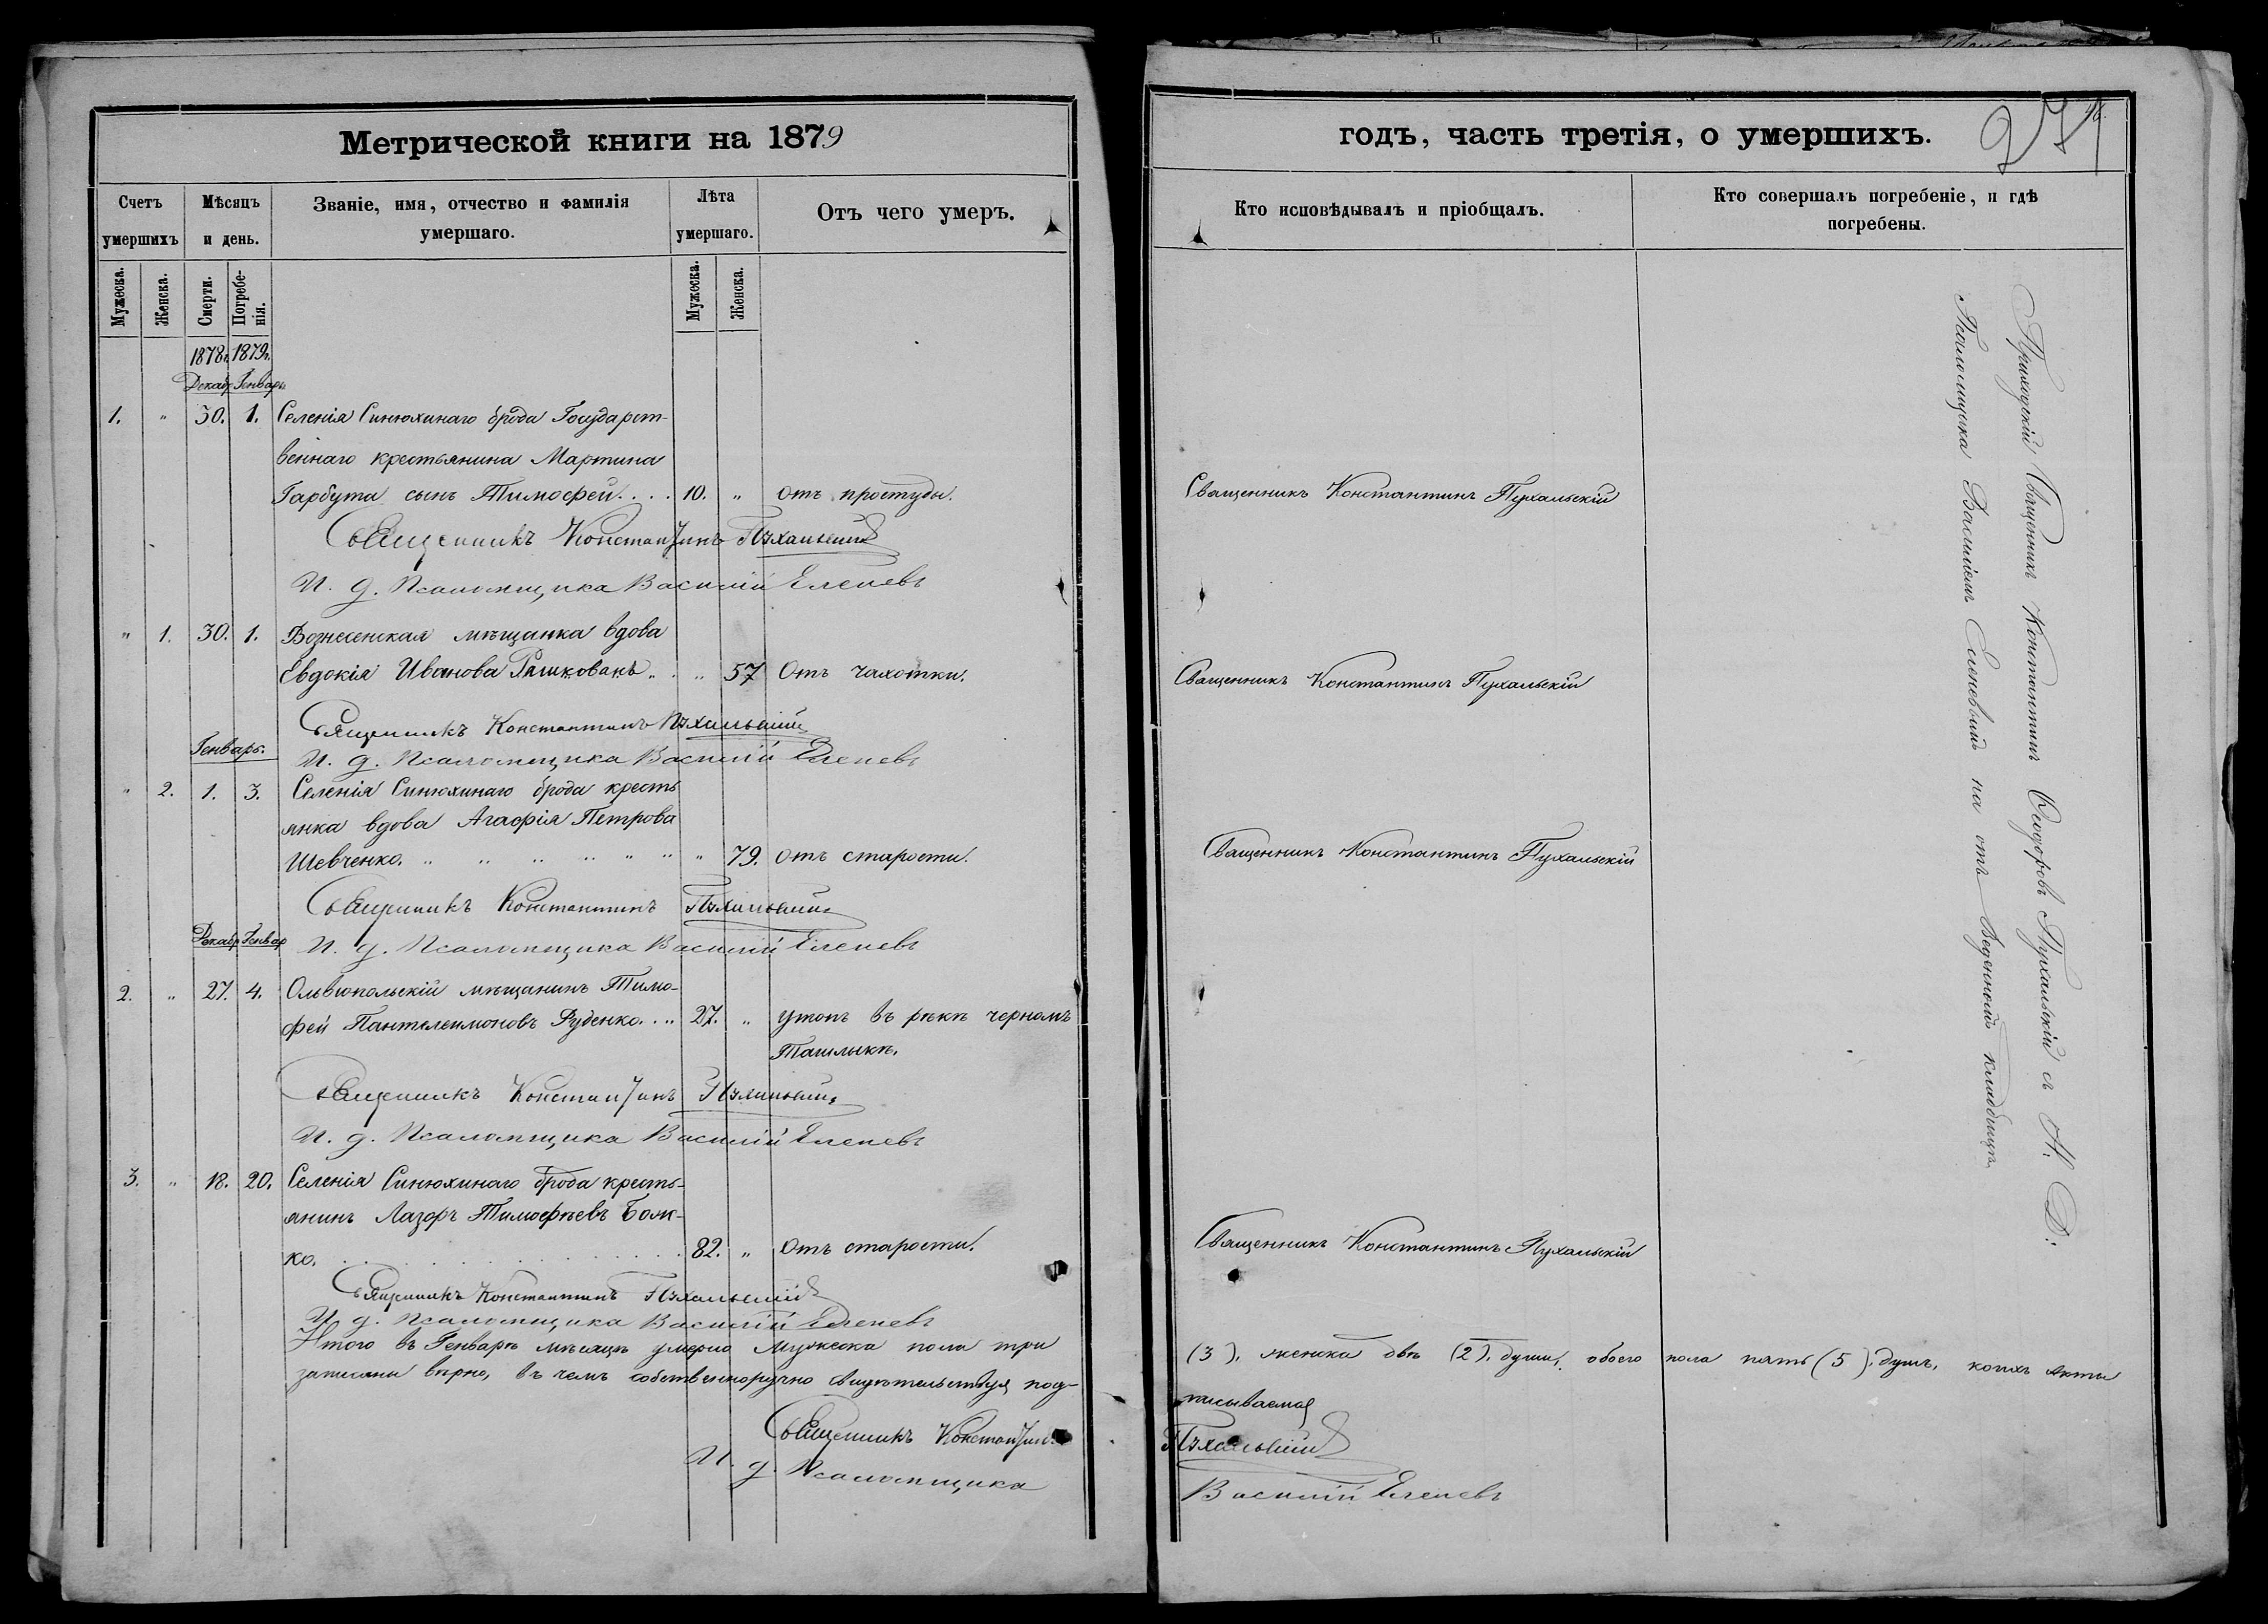 Метрической книги на 1879
Счетъ умершихъ
Мѣсяцъ и день.
Званіе, имя, отчество и фамилія умершаго.
Лѣта умершаго.
Отъ чего умеръ.
Мужеска.
Женска.
Смерти.
Погребе-
нія.
Мужеска.
Женска.
1878г. 1879г.
Декабр Генварь
1. " 30. 1. Селенія Синюхинаго брода Государст-
веннаго крестьянина Мартина
Гарбута сынъ Тимофей.... 10. " отъ простуды.
Священникъ Константинъ Пухальскій
И. д. Псаломщика Василій Еленевъ
" 1. 30. 1. Вознесенская мѣщанка вдова
Евдокія Иванова " 57 Отъ чахотки.
Священникъ Константинъ Пухальскій
Генварь.
И. д. Псаломщика Василій Еленевъ
" 2. 1. 3. Селенія Синюхинаго брода кресть
янка вдова Агафія Петрова
Шевченко. " " " " " " " 79. отъ старости.
Священникъ Константинъ Пухальскій
Декабр Генвар
И. д. Псаломщика Василій Еленевъ
2. " 27. 4. Ольвіопольскій мѣщанинъ Тимо-
фей Пантелеимоновъ Руденко.... 27. " утопъ въ рѣкѣ черномъ
Ташлыкѣ.
Священникъ Константинъ Пухальскій
И. д. Псаломщика Василій Еленевъ
3. " 18. 20. Селенія Синюхинаго брода кресть-
янинъ Лазарь Тимофѣевъ Бож-
ко. 82. " Отъ старости.
Священникъ Константинъ Пухальскій
И д. Псаломщика Василій Еленевъ
Итого въ Генварѣ мѣсяцѣ умерло мужеска пола три
записаны вѣрно, въ чемъ собственноручно свидѣтельствуя под-
Священникъ Константинъ
И. д. Псаломщика
годъ, часть третія, о умершихъ.
271
Кто исповѣдывалъ и пріобщалъ.
Кто совершалъ погребеніе, и гдѣ
погребены.
Священникъ Константинъ Пухальскій
Священникъ Константинъ Пухальскій
Священникъ Константинъ Пухальскій
Священникъ Константинъ Пухальскій
Приходскій Священникъ Константинъ Ѳеодоровъ Пухальскій съ И. Д.
Псаломщика Василіемъ Еленевымъ на отъ веденномъ кладбищѣ.
(3), женска двѣ (2). души, обоего пола пять (5). душъ, коихъ акты
писываемся
Пухальскій
Василій Еленевъ